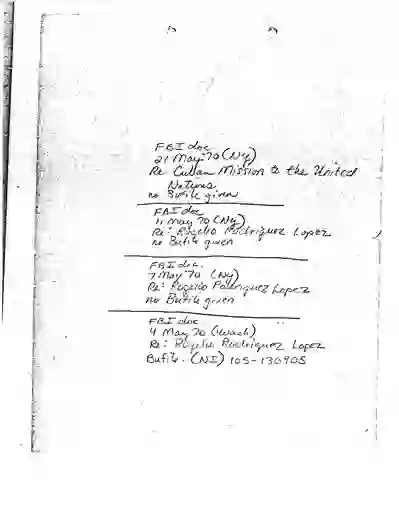 FBI doc
21 May 70 (NY)
Re Cuban Mission to the United
Nations
no Bufile given
FBI doc
11 May 70 (NY)
Re: Rogelio Rodriguez Lopez
no Bufile given
FBI doc.
7 May 70 (NY)
Re: Rogelio Rodriguez Lopez
no Bufile given
FBI doc
4 May 70 (Wash)
Re: Rogelio Rodriguez Lopez
Bufile. (NI) 105-136905